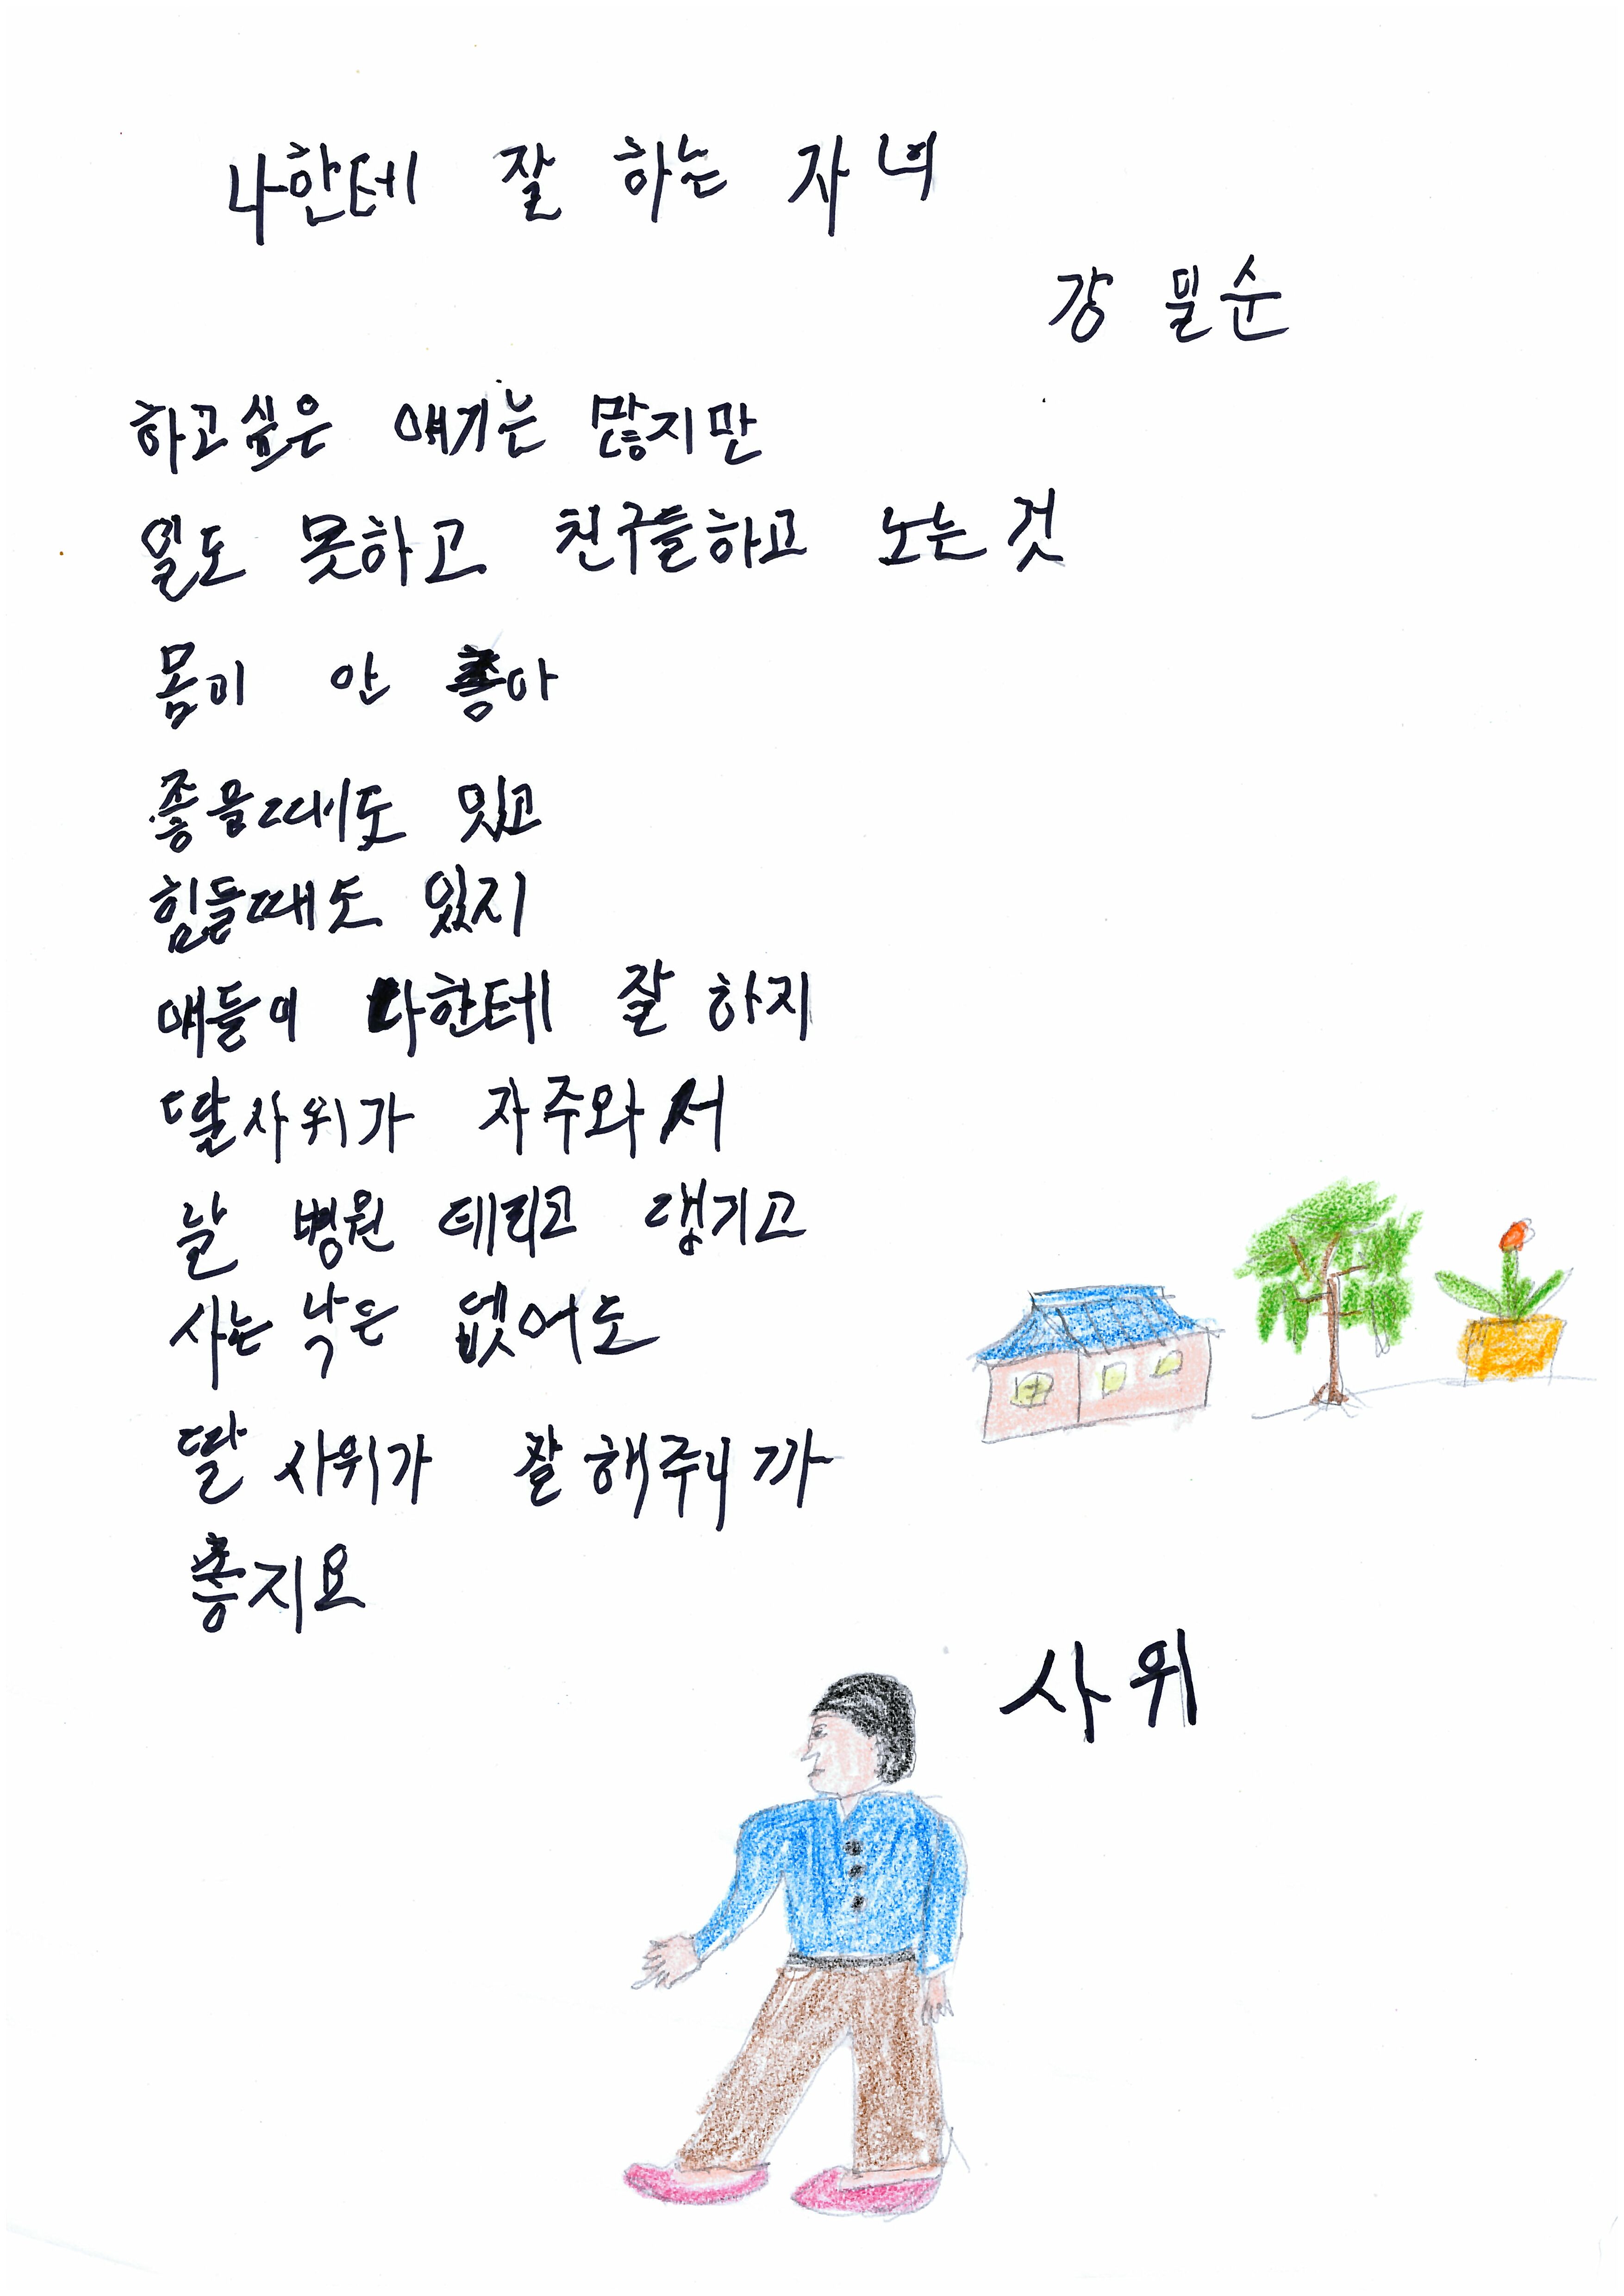 나한테 잘 하는 자녀
강 필순
하고싶은 얘기는 많지만
일도 못하고 친구들하고 노는 것
몸이 안 좋아
좋을때도 있고
힘들때도 있지
얘들이 나한테 잘 하지
딸사위가 자주와서
날 병원 데리고 댕기고
사는 낙은 없어도
딸 사위가 잘해주니까
좋지요
사위